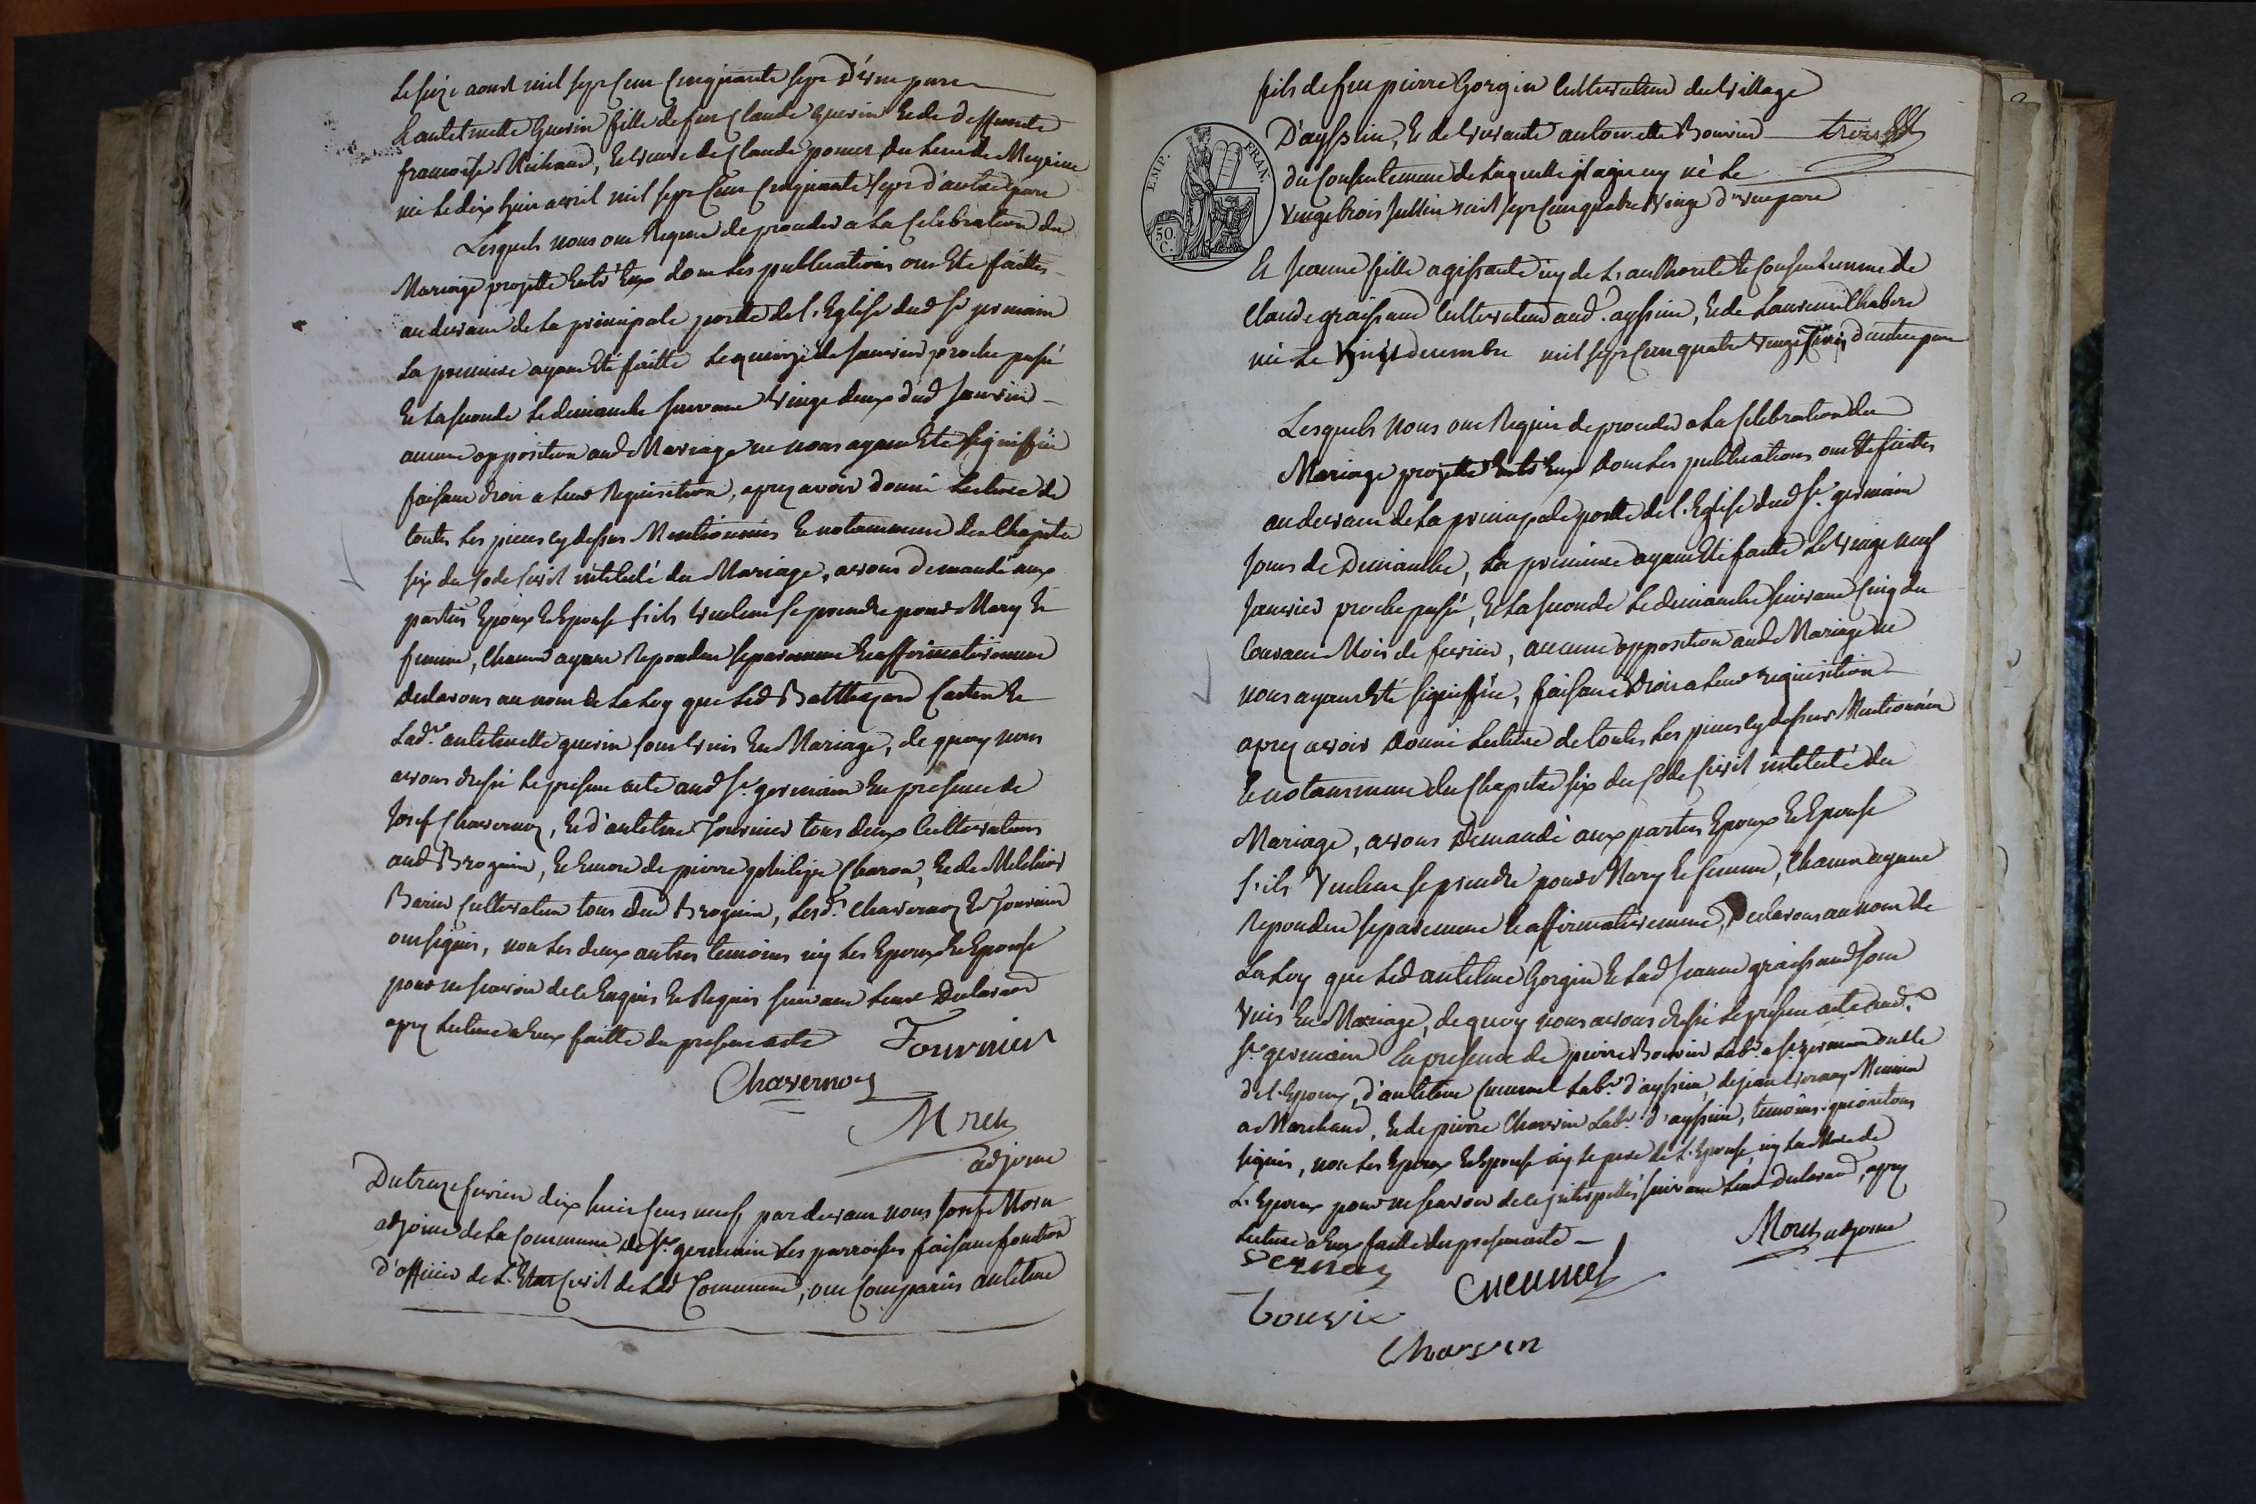 Le seize aoust mil sept cent cinquante sept d'une part
Et antelmette Guerin fille de feu Claude Guerin et de deffunte
francoise Michaud, et veuve de Claude poncet du lieu de Meyrieu
née le dix huit avril mil sept cent cinquante sept d'autre part
Lesquels nous ont requis de proceder a la celebration du
Mariage projetté entr'eux dont les publications ont été faittes
au devant de la principale portte de l'Eglise dud St germain
La premiere ayant été faitte le quinze de janvier proche passé
Et la seconde le dimanche suivant vingt deux dud janvier
aucune opposition aud Mariage ne nous ayant été signiffiée
faisant droit a leur requisition, apres avoir donné lecture de
toutes les pieces cy dessus Mentionnées et notamment du Chapitre
six du Code Civil intitulé du Mariage, avons demandé aux
parties Epoux et Epouse s'ils veulent se prendre pour Mary et
femme, chacun ayant repondu separement et affirmativement
declarons au nom de la Loy que led Balthazard et
Lad.e antelmette guerin sont unis en Mariage, de quoy nous
avons dressé le present acte aud St germain en presence de
Josef Chavernoz, et d'antelme fournier tous deux cultivateurs
aud Brognin, et encore de pierre philipe Charon, et de Melchior
Barin cultivateur tous dud Brognin, lesd. Chavernoz et fournier
ont signés, non les deux autres temoins ny les Epoux et Epouse
pour ne scavoir de ce enquis et requis suivant leur declaration
apres lecture a eux faitte du present acte Fournier
Chavernoz
Moret
adjoint
Du treize fevrier dix huit cent neuf, par devant nous Josef Moret
adjoint de la Commune de St germain les parroisses faisant fonction
d'officier de l'Etat Civil de lad Commune, ont comparus antelme
fils de feu pierre Gorgin Cultivateur du village
D'ayssin, et de vivante antoinette Bouvier
EMP. FRAN.
50. C.
du consentement de laquelle il agit né le
vingt trois Juillet mil sept cent quatre vingt d'une part
Et Jeanne fille agissante icy de l'authorité et consentement de
Claude graissand cultivateur aud. ayssin, et de
née le decembre mil sept cent quatre vingt d'autre part
Lesquels nous ont requis de proceder a la celebration du
Mariage projetté entr'eux dont les publications ont été faites
au devant de la principale portte de l'Eglise dud St germain
Jour de Dimanche, la premiere ayant été faitte le vingt neuf
Janvier proche passé, Et la seconde le dimanche suivant cinq du
courant Mois de fevrier, aucune opposition aud Mariage ne
nous ayant été signiffiée, faisant droit a leur requisition
apres avoir donné lecture de toutes les pieces cy dessus Mentionnées
et notamment du Chapitre six du Code Civil intitulé du
Mariage, avons demandé aux parties Epoux et Epouse
s'ils veulent se prendre pour Mary et femme, chacun ayant
repondu separement et affirmativement, Declarons au nom de
la Loy que led antelme Gorgin et lad Jeanne graissand sont
unis en Mariage, de quoy nous avons dressé le present acte aud.
St germain en presence de pierre Bouvier Lab.r a St germain oncle
de l'Epoux, d'antelme Cucunel Lab.r d'ayssin, de jean vernay Meunier
a Marchand, et de pierre Charvin Lab.r d'ayssin, temoins qui ont tous
signés, non les Epoux et Epouse ny le pere de l'Epouse, ny la Mere de
L'Epoux pour ne scavoir de ce interpellés suivant leur declaration, apres
lecture a eux faitte du present acte
Moret adjoint
vernay
Cucunel
bouvie
Charvin